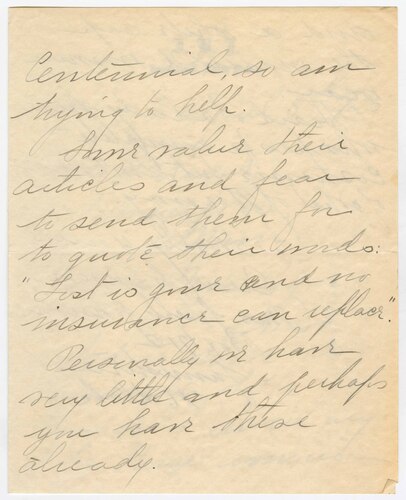 Centennial, so am
trying to help.
Some value their
articles and fear
to send them for
to quote their words:
"Lost is gone and no
insurance can replace".
Personally we have
very little and perhaps
you have these
already.